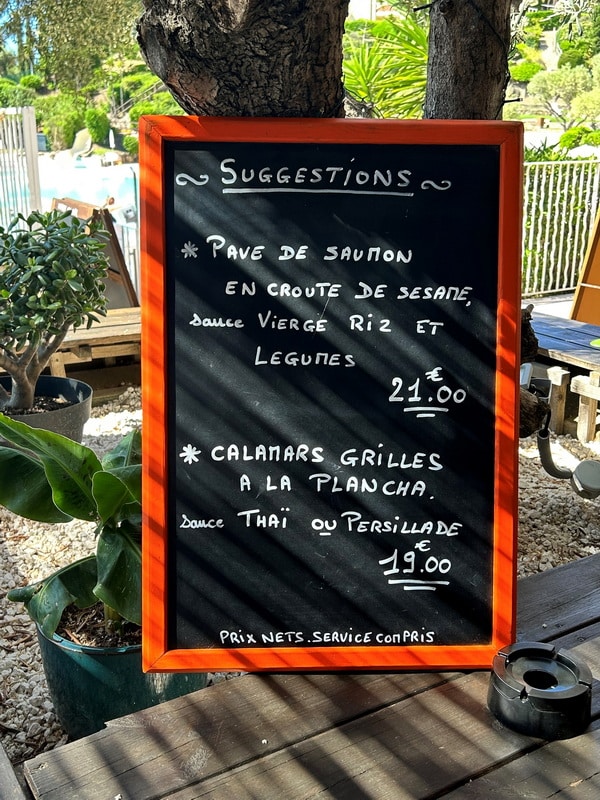 ~ SUGGESTIONS ~
* PAVE DE SAUMON
EN CROUTE DE SESAME,
Sauce VIERGE RIZ ET
LEGUMES
21.€00
* CALAMARS GRILLES
A LA PLANCHA.
Sauce THAÏ OU PERSILLADE
19.€00
PRIX NETS. SERVICE COMPRIS